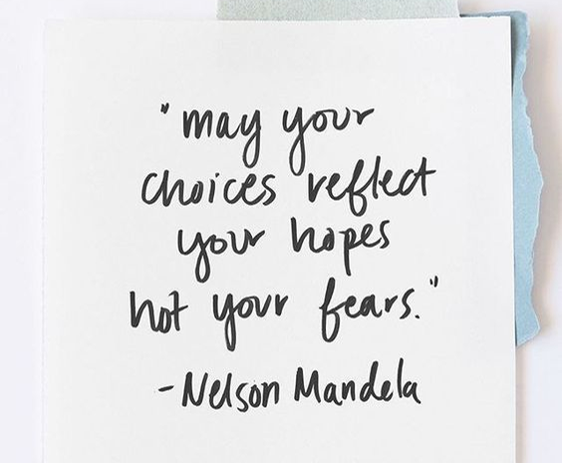 "may your
choices reflect
your hopes
not your fears."
-Nelson Mandela